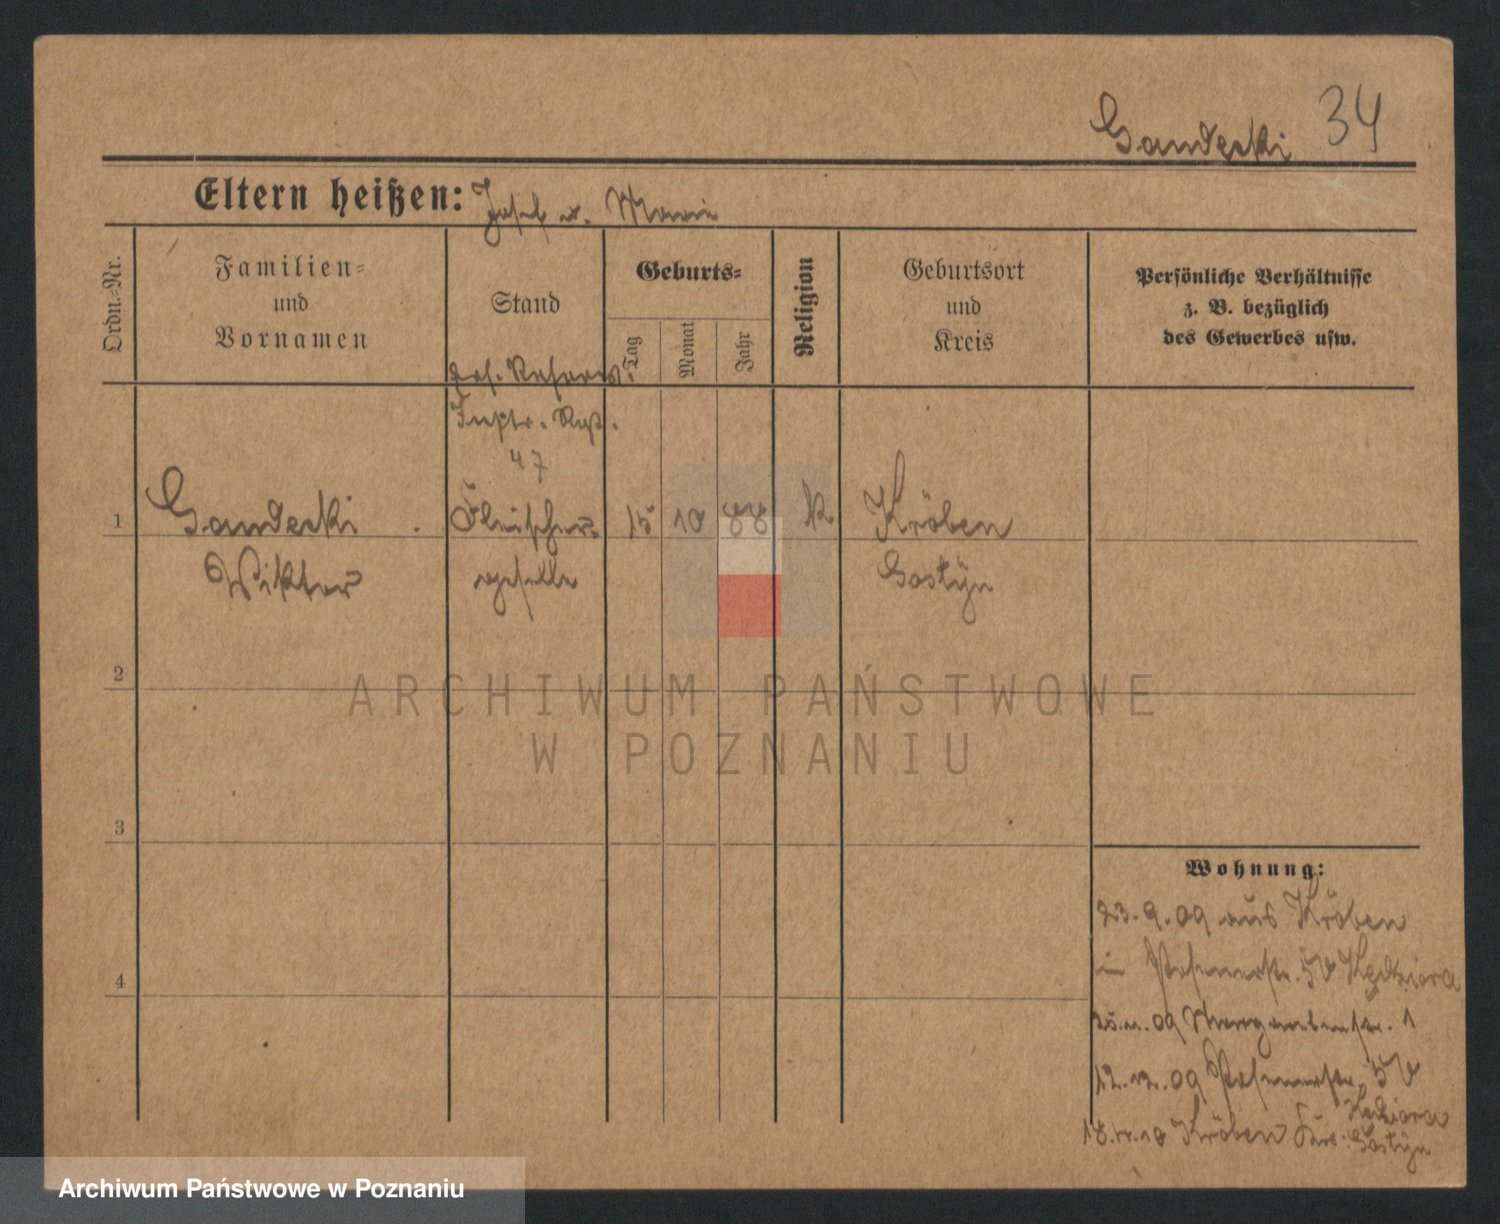 Gandecki 34
Eltern heißen: Josef u. Marie
Ordn.-Nr.
Familien-
und
Vornamen
Stand
Geburts-
Tag
Monat
Jahr
Religion
Geburtsort
und
Kreis
Persönliche Verhältnisse
z. B. bezüglich
des Gewerbes usw.
Ers. Reserv.
Inftr. Rgt.
47
1 Gandecki Fleischer- 15 10 88 k Kröben
Wiktor geselle Gostyn
2
3
4
Wohnung:
23.9.09 aus Kröben
in Posenerstr. 58 Kędziora
25.11.09 1
12.12.09 Posenerstr. 58
Kędziora
Kröben Krs. Gostyn
ARCHIWUM PAŃSTWOWE
W POZNANIU
Archiwum Państwowe w Poznaniu